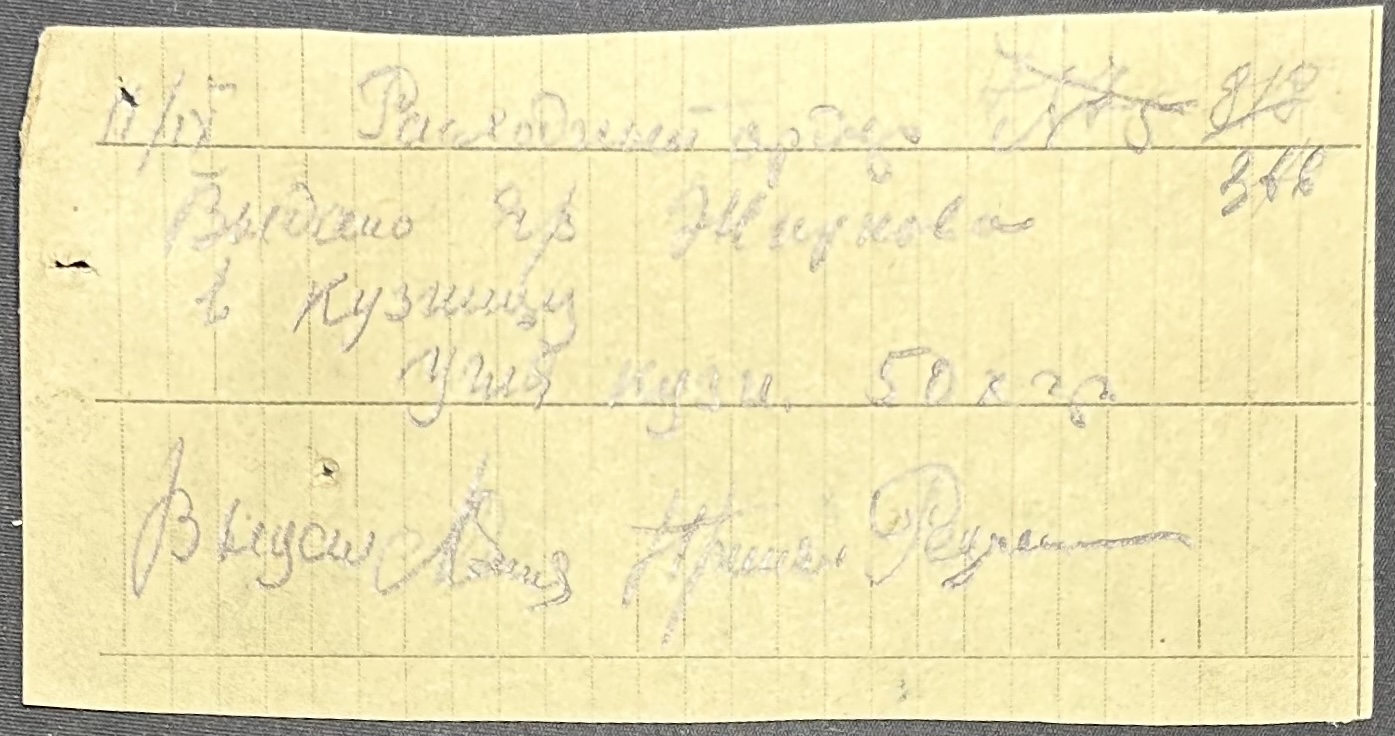 11/IV Расходный ордер № 5
Выдано гр Жиункова
в кузницу
Угля кузн. 50 кгр.
Выдал Принял